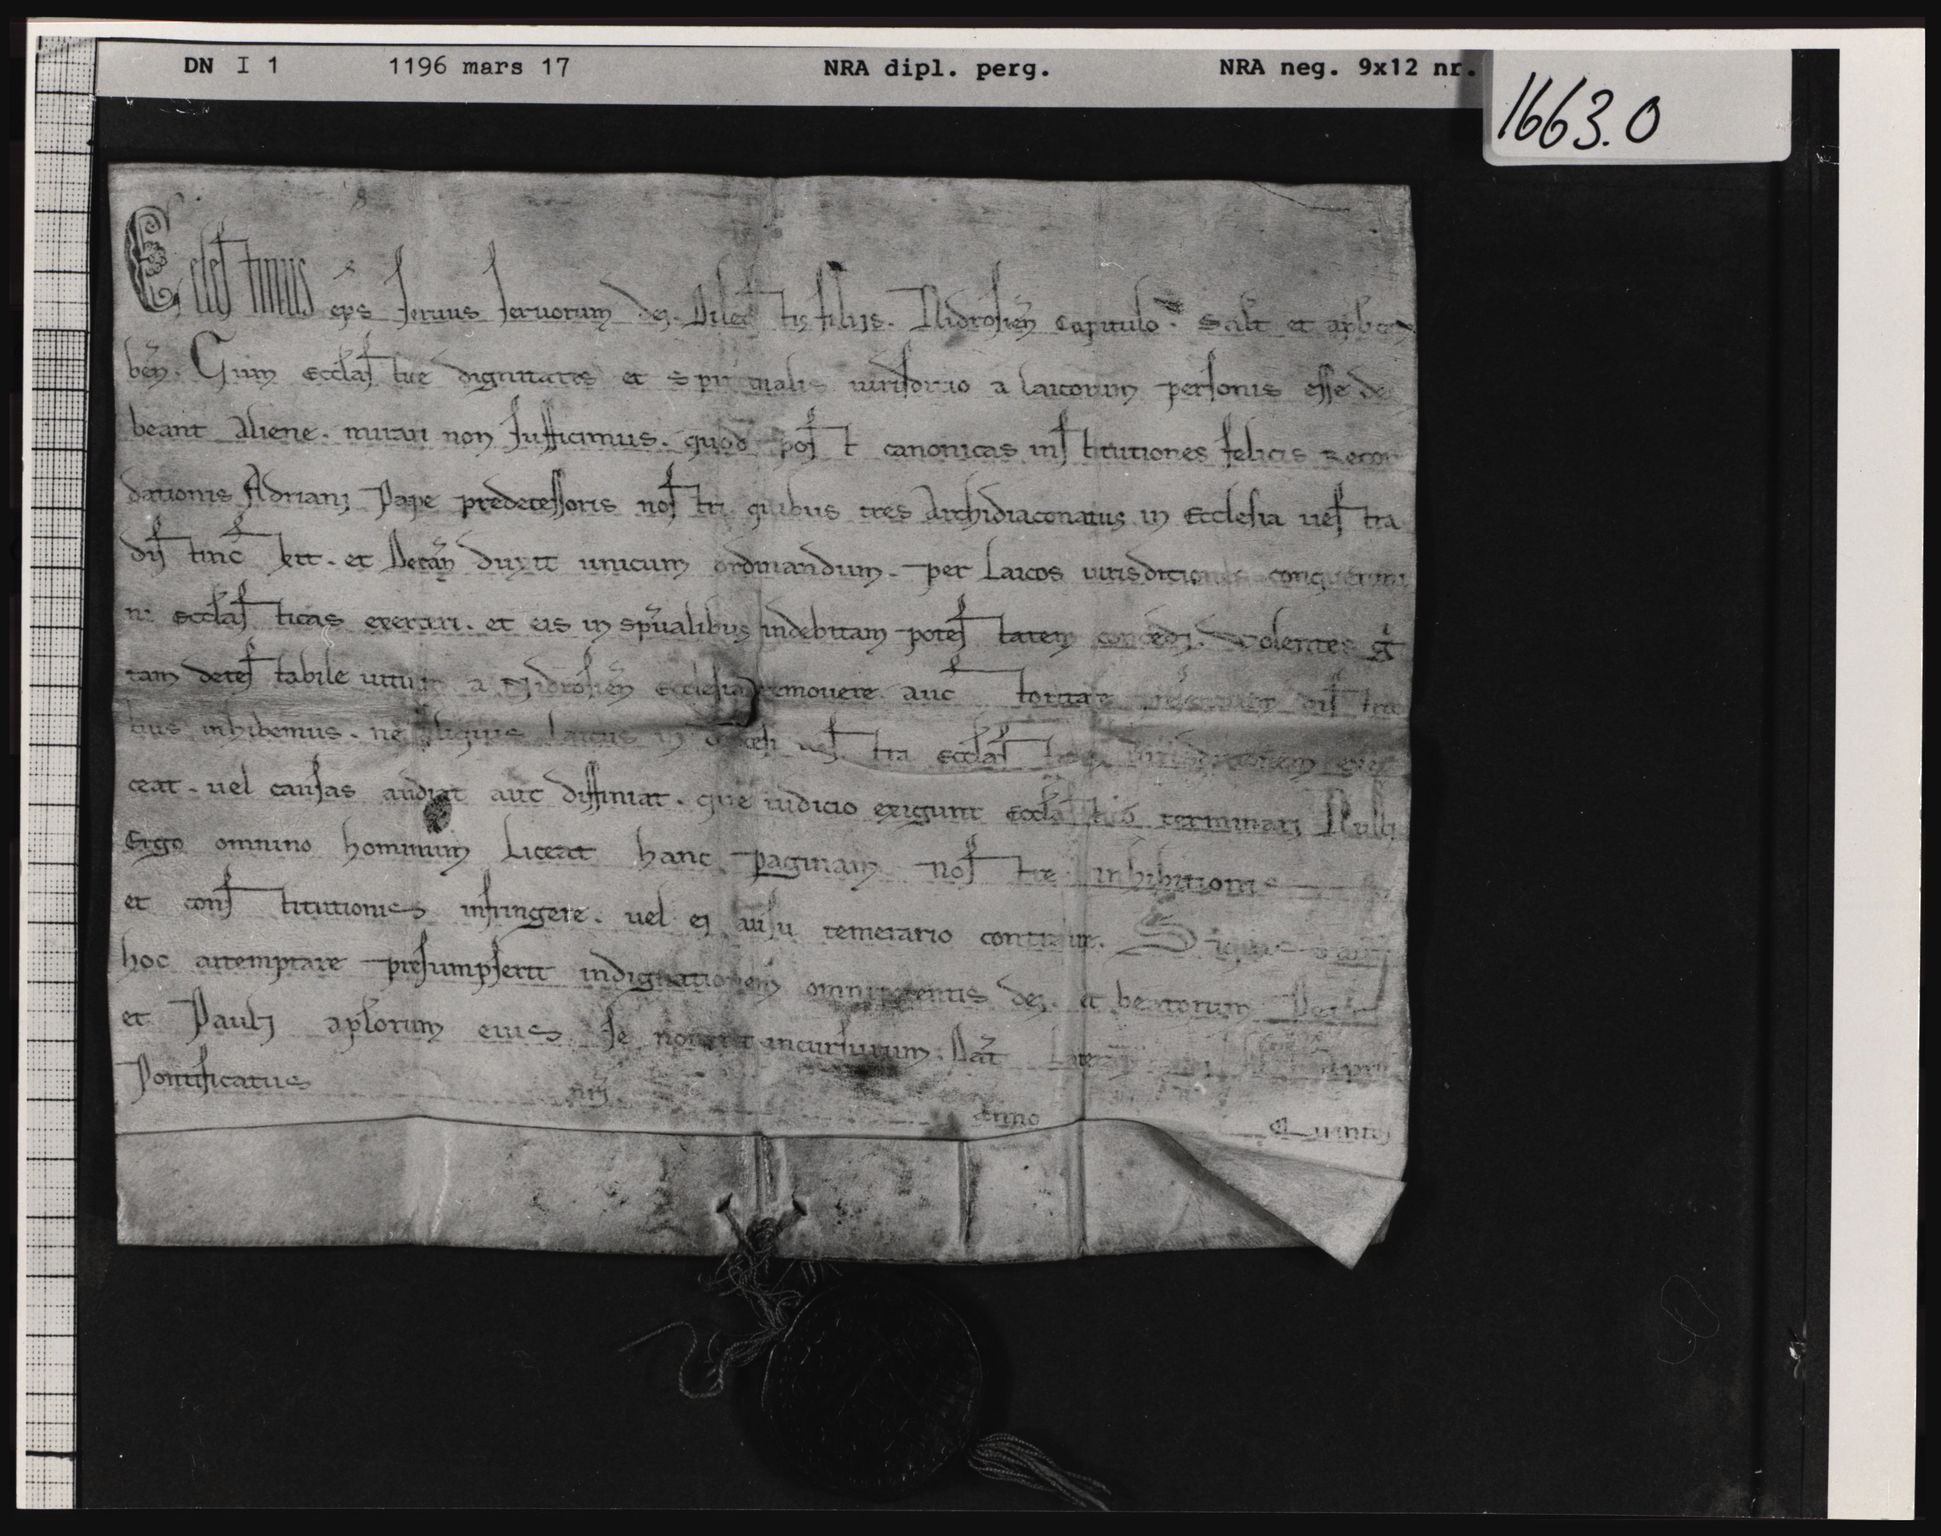 DN I 1 1196 mars 17 NRA dipl. perg. NRA neg. 9x12 nr.
1663.0
Celestinus ep̄s seruus seruorum dei. Dilectis filiis. Nidrosien̄ Capitulo. Salt̄ et
ben̄. Cum eccl̄astice dignitates et spiritualis iurisdictio a laicorum personis esse de
beant aliene. mirari non sufficimus. quod post canonicas institutiones felicis recor
dationis Adriani Pape predecessoris nostri quibus tres Archidiaconatus in Ecclesia uestra
distinxit. et Decan̄ duxit unicum ordinandum. per Laicos iurisdictiones
eccl̄asticas exerceri. et eis in spūalibus indebitam potestatem concedi. Volentes g̊
tam detestabile uitium a Nidrosien̄ Ecclesia remouere. auctoritate
bus inhibemus. ne aliquis Laicus in diocesi uestra eccl̄asticam iurisdictionem exer
ceat. uel causas audiat aut diffiniat. que iudicio exigunt Eccl̄astico terminari Nulli
Ergo omnino hominum Liceat hanc paginam nostre inhibitionis
et constitutionis infringere. uel ei ausu temerario contraire. Siquis autem
hoc attemptare presumpserit indignationem omnipotentis dei. et beatorum Petri
et Pauli apl̄orum eius se nouerit incursurum. Dat̄ Lateran̄
Pontificatus nr̄j Anno Quinto